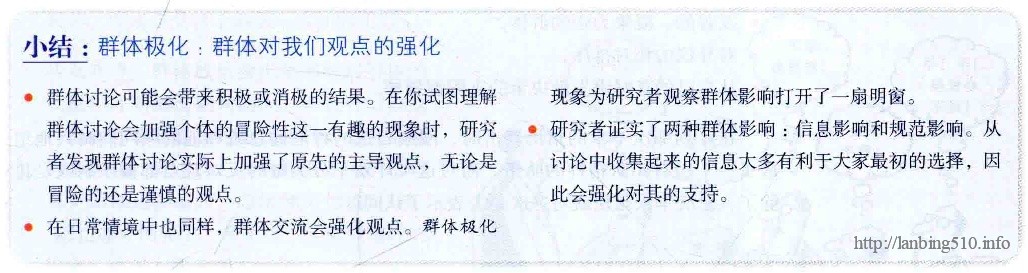 小结：群体极化：群体对我们观点的强化
● 群体讨论可能会带来积极或消极的结果。在你试图理解
群体讨论会加强个体的冒险性这一有趣的现象时，研究
者发现群体讨论实际上加强了原先的主导观点，无论是
冒险的还是谨慎的观点。
● 在日常情境中也同样，群体交流会强化观点。群体极化
现象为研究者观察群体影响打开了一扇明窗。
● 研究者证实了两种群体影响：信息影响和规范影响。从
讨论中收集起来的信息大多有利于大家最初的选择，因
此会强化对其的支持。
http://lanbing510.info